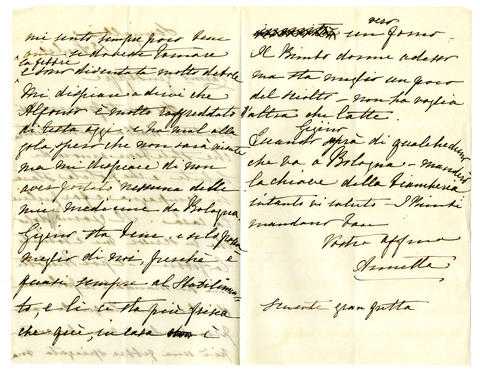 mi sento sempre poco bene
la febbre
e sono diventata molto debole
Mi dispiace a dirvi che
Alfonso è molto raffreddato
di testa oggi e ha mal alla
gola, spero che non sarà niente
ma mi dispiace di non
aver portato nessuna delle
mie medicine da Bologna
Gigino sta bene, e se la passa
meglio di noi, perchè è
quasi sempre al Stabilimen-
to, e lì ci sta più fresca
che qui, in casa è
vero
un forno
Il Bimbo dorme adesso
ma sta meglio un poco
del sciolto, non ha voglia
d'altra che latte.
Gigino
Quando saprà di qualcheduno
che va a Bologna, manderà
la chiave della
intanto vi saluto. I Bimbi
mandano baci
Vostra affma
Annetta
Scusate gran fretta